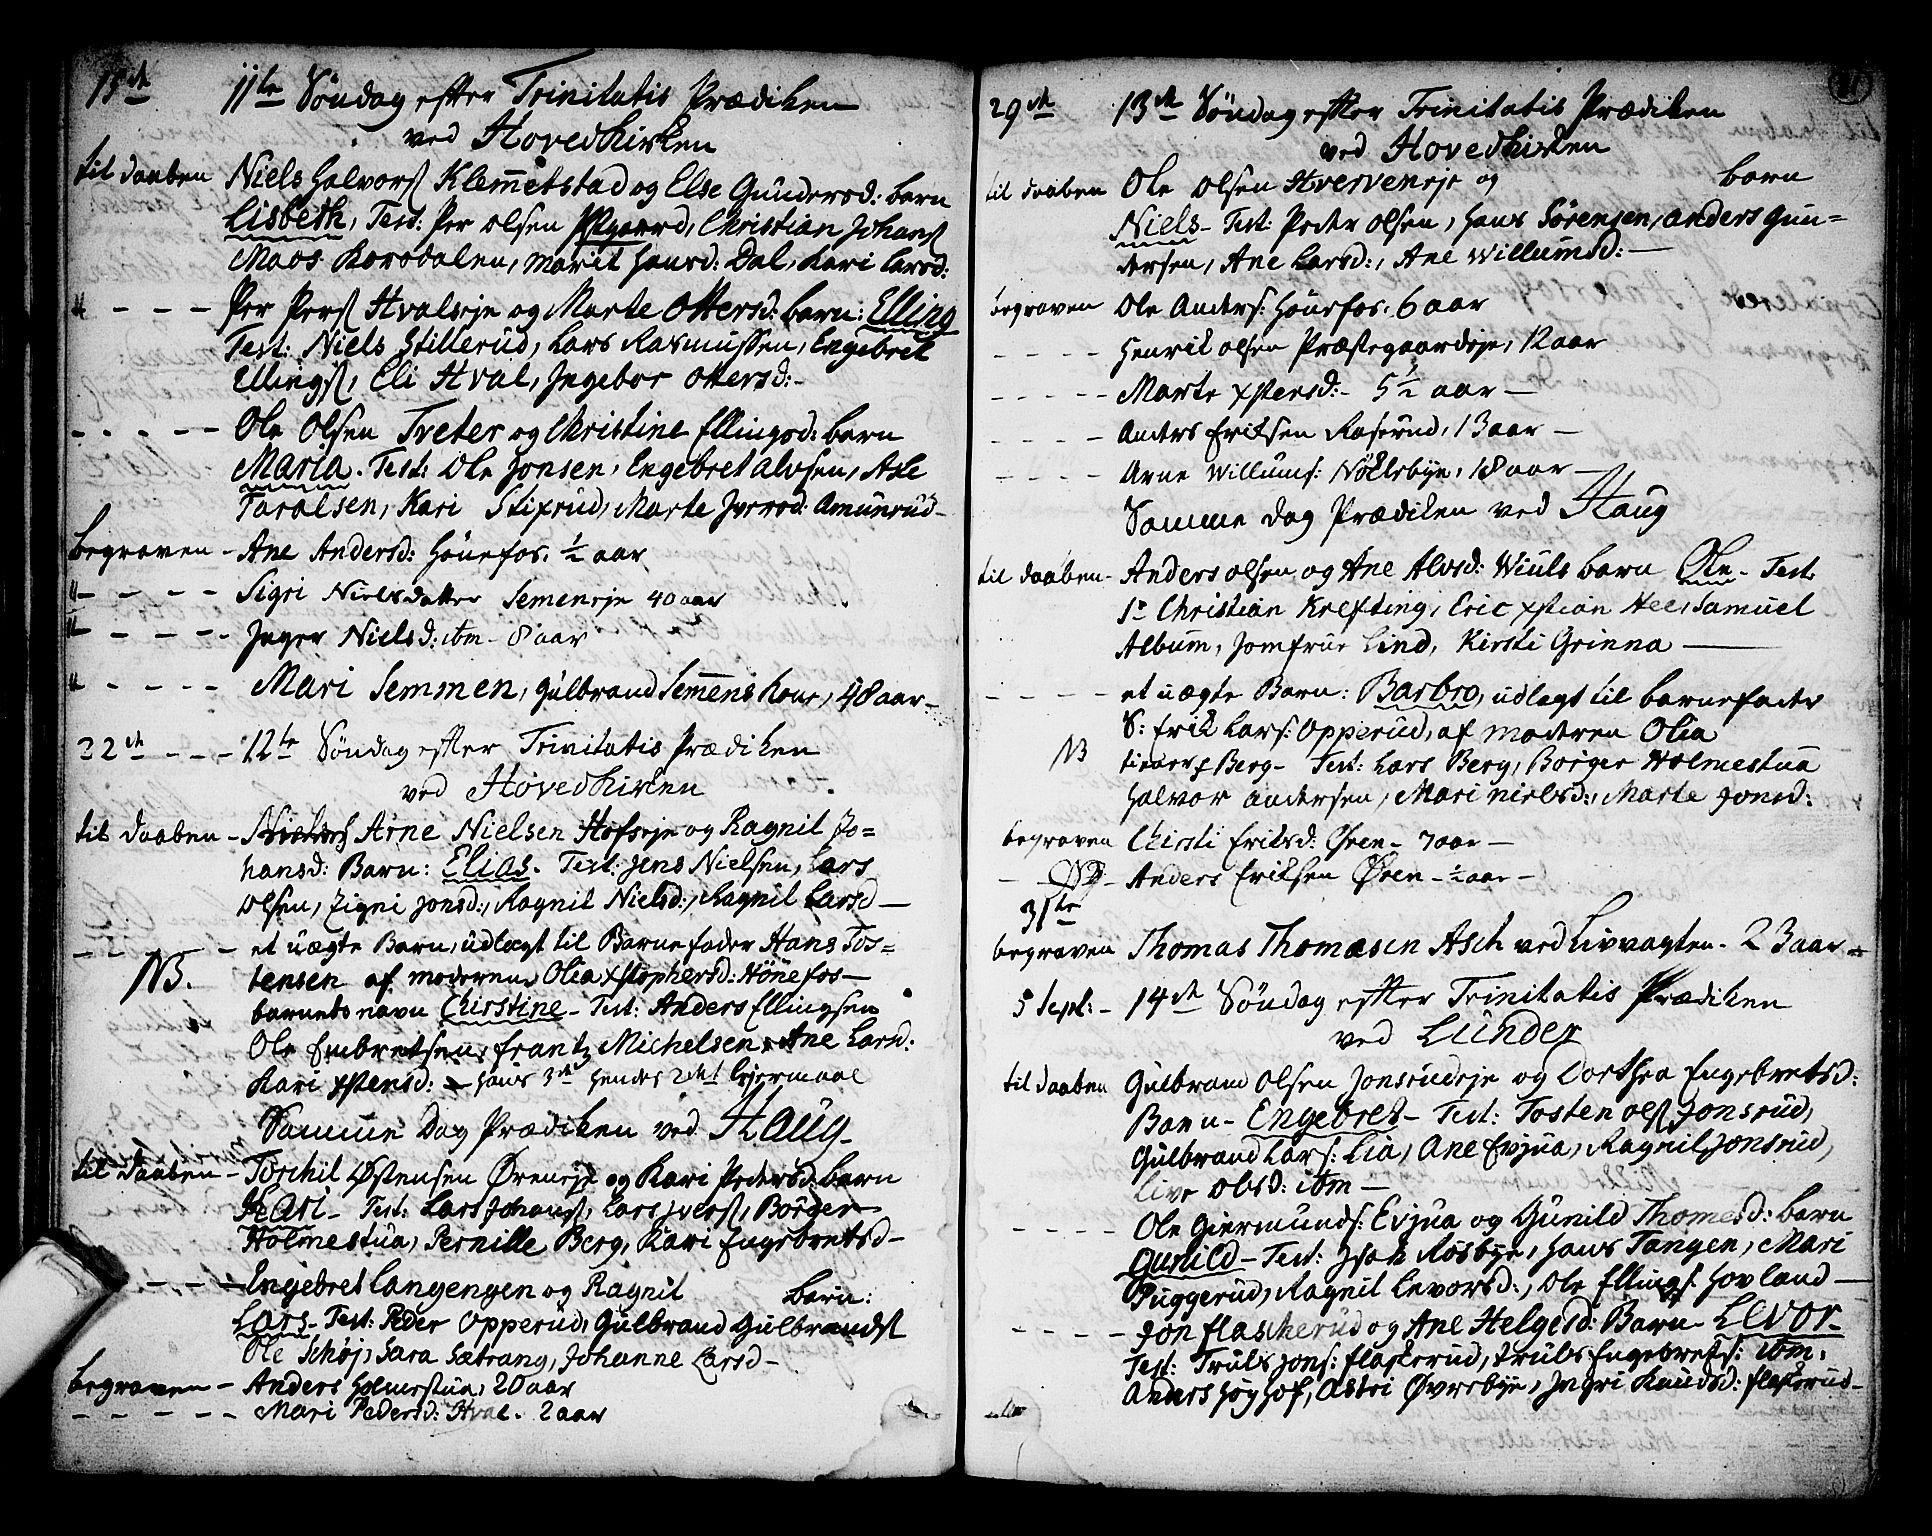 15de 11te Søndag efter Trinitatis Prædiken
ved Hovedkirken
til daaben Niels Halvors: Klemmetstad og Else Gundersd: barn
Lisbeth, Test: Per Olsen Christian Johans:
Maos Korsdalen, Marit Hansd: Dal, Kari Larsd:
" - - - - Per Pers: Hvalseje og Marte Ottersd: barn: Elling
Test: Niels Stillerud, Lars Rasmussen, Engebret
Ellings:, Eli Hval, Ingebor Ottersd: -
- - - - - Ole Olsen Tveter og Christine Ellingsd: barn
Maria. Test: Ole Jonsen, Engebret Alvsen, Asle
Taralsen, Kari Stixrud, Marte Amunrud -
begraven - Ane Andersd: Hønefos. ½ aar
" - - - - Sigri Nielsdatter Semeneje 40 aar
" - - - - Inger Nielsd: ibm - 8 aar
" - - - - Mari Semmen, Gulbrand Semmens kone, 48 aar -
22de - - - 12te Søndag efter Trinitatis Prædiken
ved Hovedkirken
til daaben - Arne Nielsen Hofseje og Ragnil Jo=
hansd: Barn: Elias. Test: Jens Nielsen, Lars
Olsen, Zigni Jonsd:, Ragnil Nielsd:, Ragnil Larsd -
- - - - - et uægte Barn, udlagt til Barnefader Hans Tos=
NB. tensen af moderen, Olia xstophersd: Hønefos -
barnets navn Chirstine - Test: Anders Ellingsen
Ole Embretsen, Frantz Michelsen, Ane Larsd:
Kari xstensd: - hans 3die hendes 2det Lejermaal
Samme Dag Prædiken ved Haug -
til daaben - Torchil Østensen Øreneje og Kari Pedersd: barn
Kari - Test: Lars Johans:, Lars Ivers:, Börger
Holmestua, Pernille Berg, Kari Engebretsd -
- - - - Engebret Langengen og Ragnil barn:
Lars - Test: Peder Opperud, Gulbrand Gulbrands:
Ole Schøj, Sara Sætrang, Johanne Larsd -
begraven - Anders Holmestua, 20 aar
- - - - - Mari Pedersd: Hval. 2 aar
29de 13de Søndag efter Trinitatis Prædiken
ved Hovedkirken
til daaben Ole Olsen Hverveneje og barn
Niels - Test: Peter Olsen, Hans Sørensen, Anders Gun=
dersen, Ane Larsd:, Ane Willumsd: -
begraven Ole Anders: Hønefos. 6 aar
- - - - Henrik Olsen Præstegaardeje, 12 aar
- - - - Marte xstensd: - 5½ aar -
- - - - Anders Eriksen Raserud, 13 aar -
- - - - Arne Willums: Nöklebye, 18 aar -
Samme dag Prædiken ved Haug
til daaben - Anders Olsen og Ane Alvsd: Wiuls barn Ole - Test.
Sr Christian Krefting, Eric xstian Hee, Samuel
Album, Jomfrue Lind, Kirsti Grinna -
- - - - et uægte Barn: Barbro, udlagt til barnefader
S: Erik Lars: Opperud, af moderen Olia
NB Berg - Test: Lars Berg, Börger Holmestua
Halvor Andersen, Mari Nielsd:, Marte Jonsd:
begraven Chirsti Eriksd: Øren - 7 aar -
- - Anders Eriksen Øren - ½ aar -
31te
begraven Thomas Thomasen Asch ved Livvagten - 23 aar -
5 Sept: - 14de Søndag efter Trinitatis Prædiken
ved Lunder
til daaben Gulbrand Olsen Jonsrudeje og Dorthea Engebretsd:
Barn - Engebret - Test: Tosten Ols: Jonsrud,
Gulbrand Lars: Lia, Ane Evjua, Ragnil Jonsrud,
Live Olsd: ibm -
- - - - Ole Giermunds: Evjua og Gunild Thomesd: barn
Gunild - Test: Isak Røsbye, Hans Tangen, Mari
Puggerud, Ragnil Levorsd:, Ole Ellings: Hovland -
- - - - Jon Flascherud og Ane Helgesd: Barn - Levor -
Test: Truls Jons: Flaskerud, Truls Engebrets: ibm.
Anders Høghof, Astri Øvrebye, Ingri Knudsd: Flaskerud -